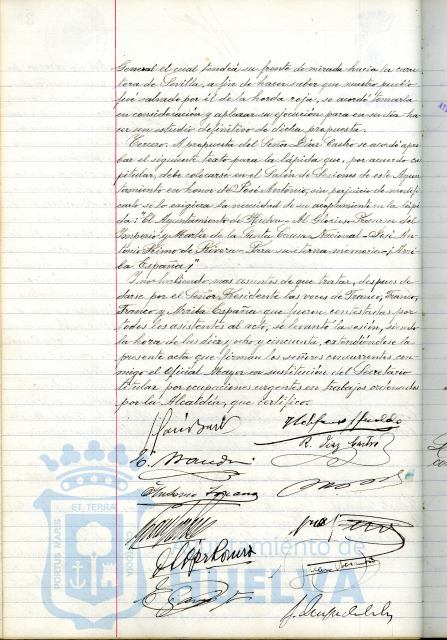 General el cual tendrá su frente de mirada hacia la carre
tera de Sevilla, a fin de hacer saber que nuestro pueblo
fué salvado por él de la horda roja, se acordó tomarla
en consideración y aplazar su ejecución para en su día ha
cer un estudio definitivo de dicha propuesta.
Tercero. A propuesta del Señor Díaz Castro se acordó apro
bar el siguiente texto para la lápida que, por acuerdo ca
pitular, debe colocarse en el Salón de Sesiones de este Ayun
tamiento en honor de José Antonio, sin perjuicio de modifi
carlo si lo exigiera la necesidad de su acoplamiento en la lápi
da: "El Ayuntamiento de Huelva- Al Glorioso Precursor del
Imperio y Mártir de la Santa Causa Nacional- José An
tonio Primo de Rivera- Para su eterna memoria- ¡Arri
ba España!"
Y no habiendo mas asuntos de que tratar, despues de
darse por el Señor Presidente las voces de Franco, Franco,
Franco y Arriba España que fueron contestadas por
todos los asistentes al acto, se levantó la sesión, siendo
la hora de las diez y ocho y cincuenta, extendiéndose la
presente acta que firman los señores concurrentes con
migo el Oficial Mayor en sustitución del Secretario
titular por ocupaciones urgentes en trabajos ordenados
por la Alcaldía, que certifico.
R. Diaz Castro
E.
Antonio
López
PORTUS MARIS ET TERRÆ CUSTODIA
Ayuntamiento de
HUELVA